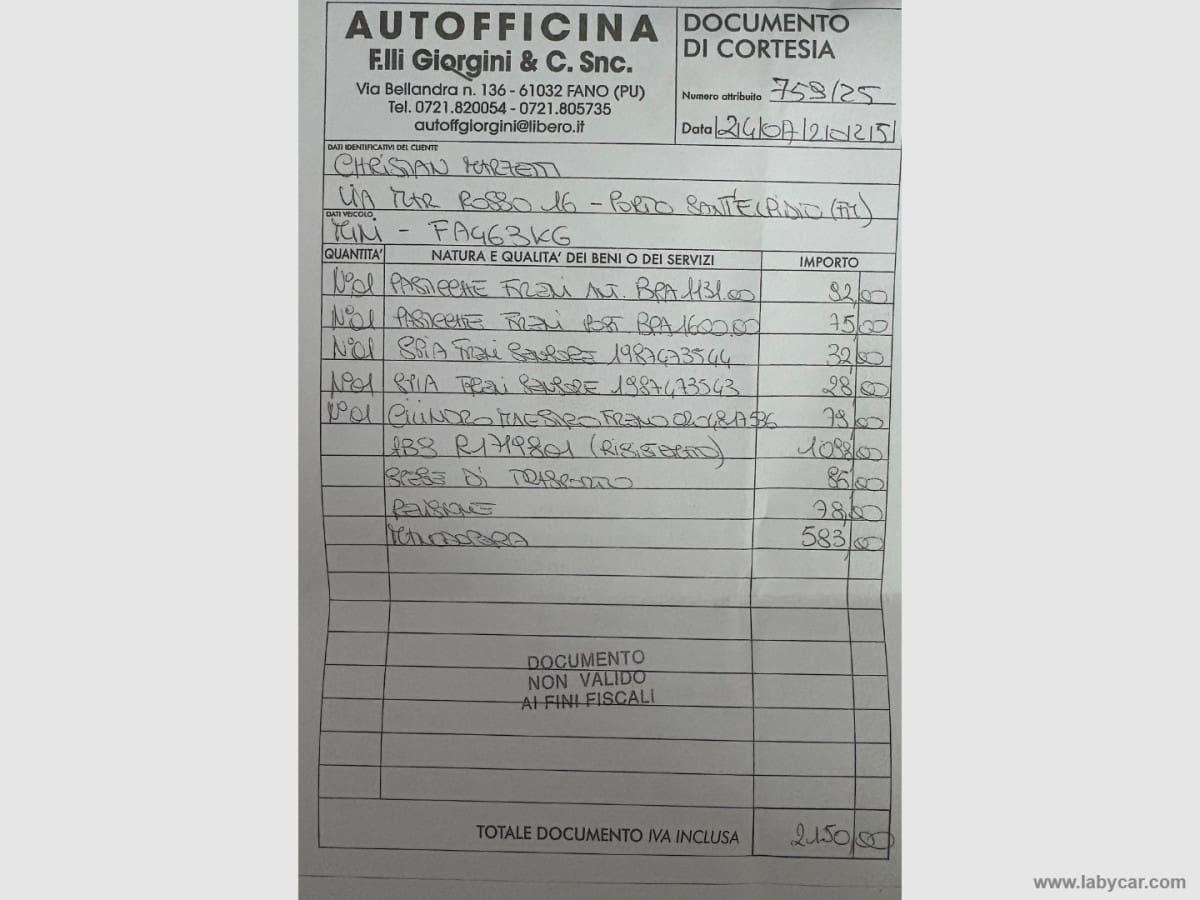 AUTOFFICINA
F.lli Giorgini & C. Snc.
Via Bellandra n. 136 - 61032 FANO (PU)
Tel. 0721.820054 - 0721.805735
autoffgiorgini@libero.it
DOCUMENTO
DI CORTESIA
Numero attribuito 759/25
Data 24 07 2025
DATI IDENTIFICATIVI DEL CLIENTE
CHRISTIAN MARZETTI
VIA MAR ROSSO 16 - PORTO SANT'ELPIDIO (FM)
DATI VEICOLO
MINI - FA463KG
QUANTITA' NATURA E QUALITA' DEI BENI O DEI SERVIZI IMPORTO
N°01 PASTICCHE FRENI ANT. BPA1131.00 92,00
N°01 PASTICCHE FRENI POST. BPA1600.00 75,00
N°01 SPIA FRENI SENSORE 1987473544 32,00
N°01 SPIA FRENI SENSORE 1987473543 28,00
N°01 CILINDRO MAESTRO FRENO 79,00
ABS R1719801 1098,00
SPESE DI TRASPORTO 85,00
REVISIONE 78,00
MANODOPERA 583,00
DOCUMENTO
NON VALIDO
AI FINI FISCALI
TOTALE DOCUMENTO IVA INCLUSA 2150,00
www.labycar.com